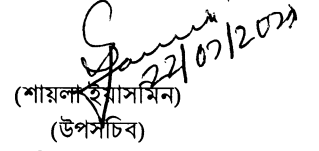 22/07/2021
(শায়লা ইয়াসমিন)
(উপসচিব)